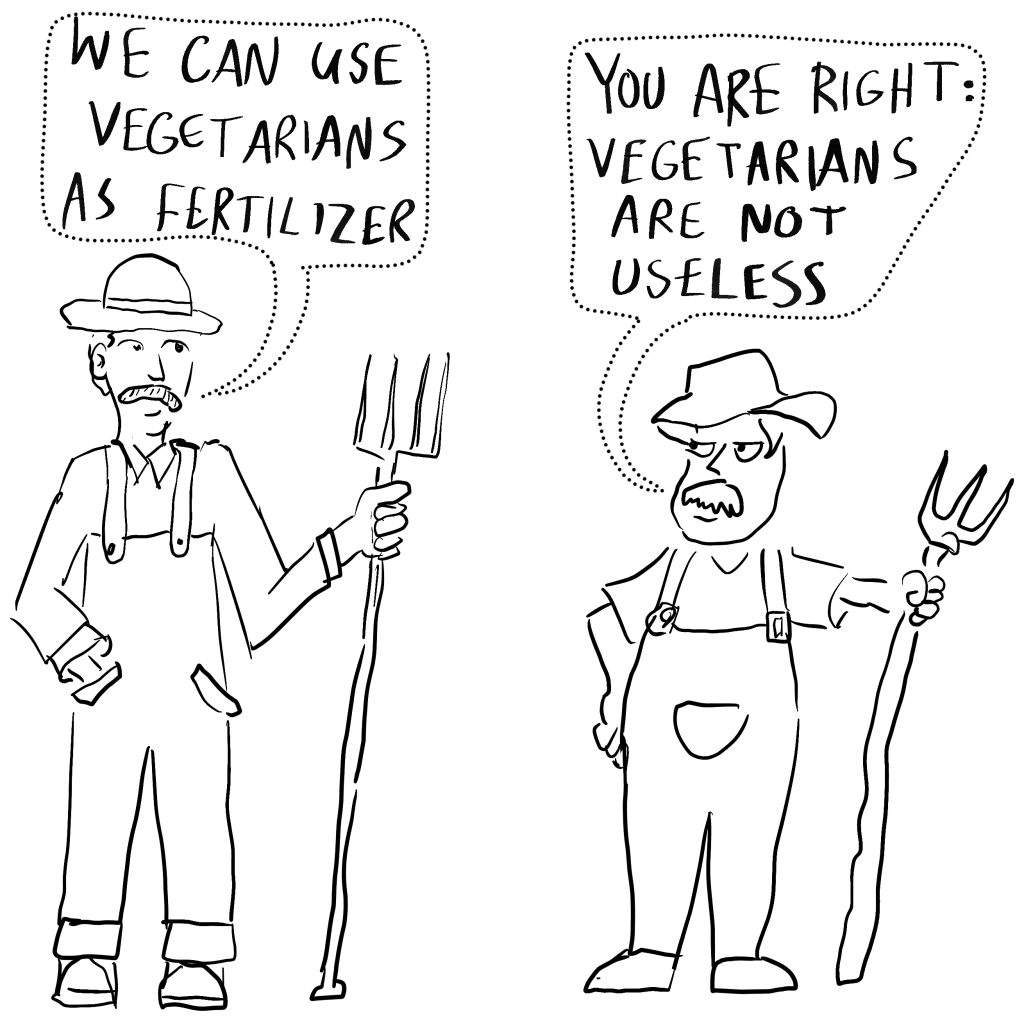 WE CAN USE
VEGETARIANS
AS FERTILIZER
YOU ARE RIGHT:
VEGETARIANS
ARE NOT
USELESS